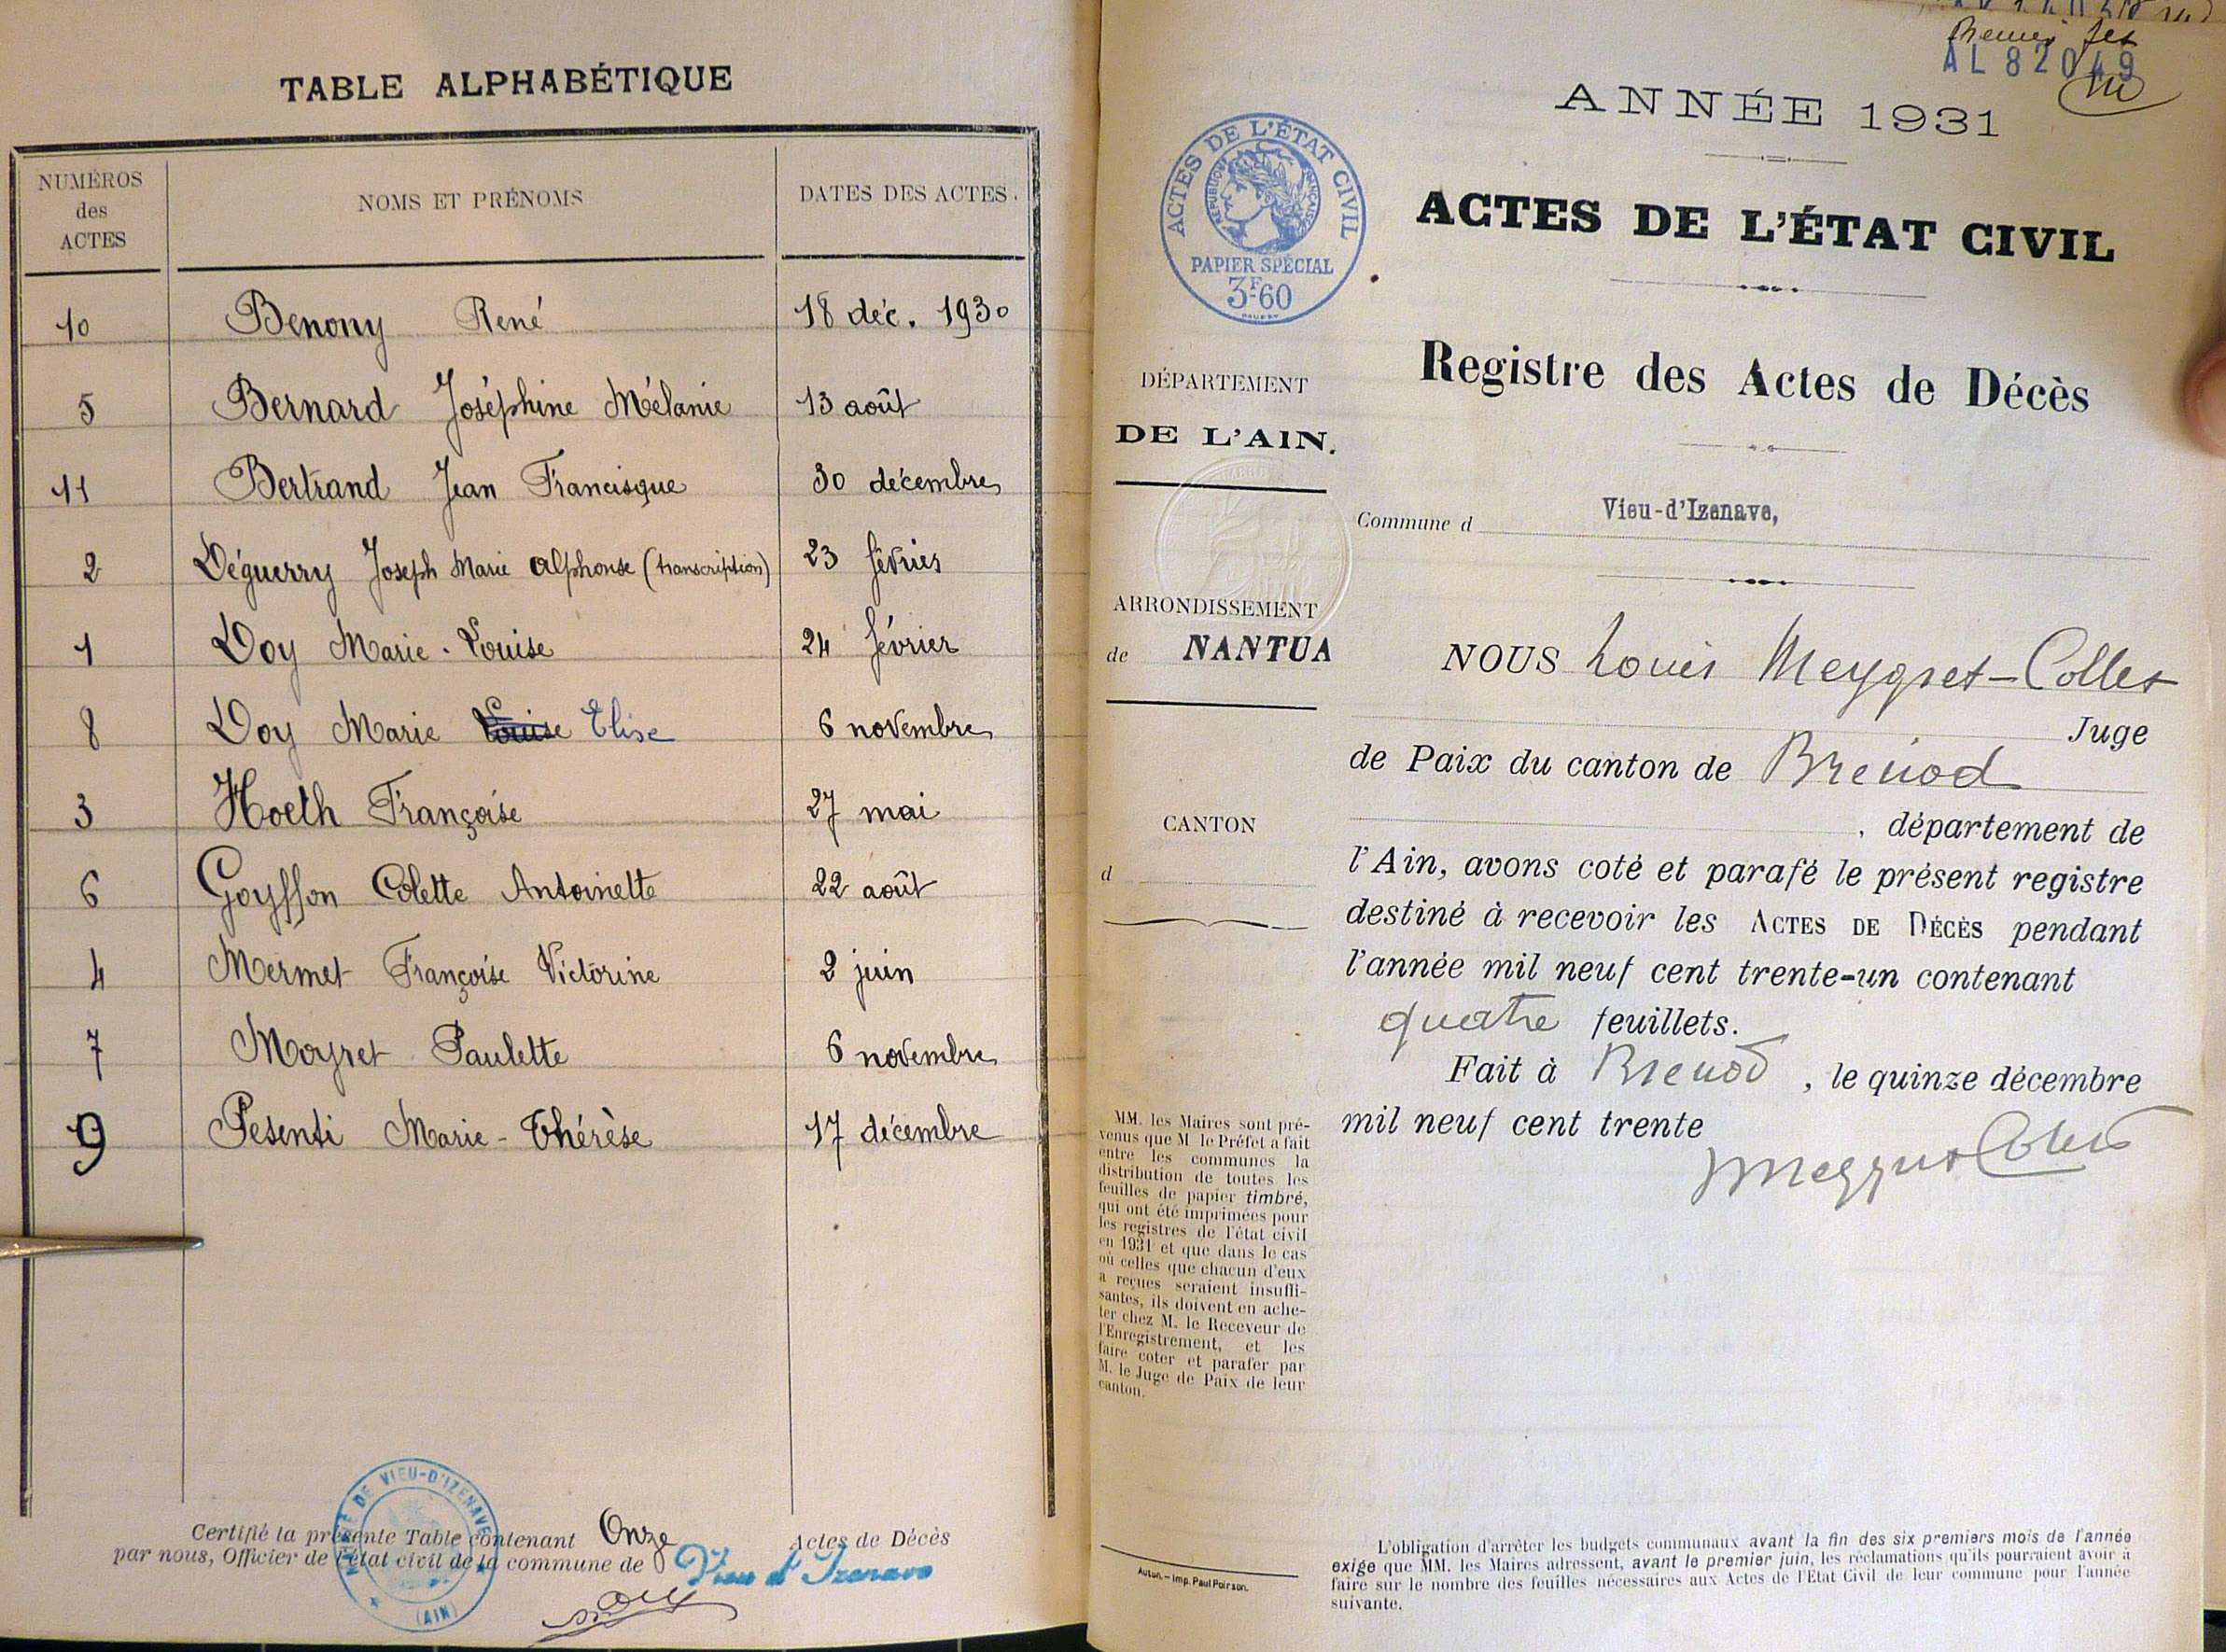 TABLE ALPHABÉTIQUE
NUMÉROS
des
ACTES
NOMS ET PRÉNOMS
DATES DES ACTES.
10 Benony René 18 déc. 1930
5 Bernard Joséphine Mélanie 13 août
11 Bertrand Jean Francisque 30 décembre
2 Déguerry Joseph Marie Alphonse (transcription) 23 février
1 Doy Marie-Louise 24 février
8 Doy Marie Louise Elise 6 novembre
3 Hoeth Françoise 27 mai
6 Goyffon Colette Antoinette 22 août
4 Mermet Françoise Victorine 2 juin
7 Moyret Paulette 6 novembre
9 Pesenti Marie-Thérèse 17 décembre
Certifié la présente Table contenant Onze Actes de Décès
par nous, Officier de l'état civil de la commune de Vieu d'Izenave
MAIRIE DE VIEU-D'IZENAVE
(AIN)
Premier
AL82049
ANNÉE 1931
ACTES DE L'ÉTAT CIVIL
RÉPUBLIQUE FRANÇAISE
PAPIER SPÉCIAL
3F60
ACTES DE L'ÉTAT CIVIL
Registre des Actes de Décès
DÉPARTEMENT
DE L'AIN.
Commune d Vieu-d'Izenave,
ARRONDISSEMENT
de NANTUA
CANTON
d
NOUS Louis Meygret-Collet
Juge
de Paix du canton de Brénod
, département de
l'Ain, avons coté et parafé le présent registre
destiné à recevoir les ACTES DE DÉCÈS pendant
l'année mil neuf cent trente-un contenant
quatre feuillets.
Fait à Brénod, le quinze décembre
mil neuf cent trente
Meygret Collet
MM. les Maires sont pré-
venus que M le Préfet a fait
entre les communes la
distribution de toutes les
feuilles de papier timbré,
qui ont été imprimées pour
les registres de l'état civil
en 1931 et que dans le cas
où celles que chacun d'eux
a reçues seraient insuffi-
santes, ils doivent en ache-
ter chez M. le Receveur de
l'Enregistrement, et les
faire coter et parafer par
M. le Juge de Paix de leur
canton.
Autun. — Imp. Paul Poirson.
L'obligation d'arrêter les budgets communaux avant la fin des six premiers mois de l'année
exige que MM. les Maires adressent, avant le premier juin, les réclamations qu'ils pourraient avoir à
faire sur le nombre des feuilles nécessaires aux Actes de l'Etat Civil de leur commune pour l'année
suivante.